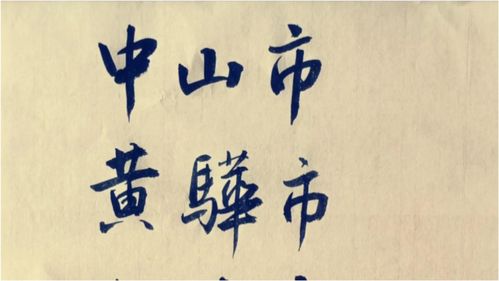 中山市
黄驊市